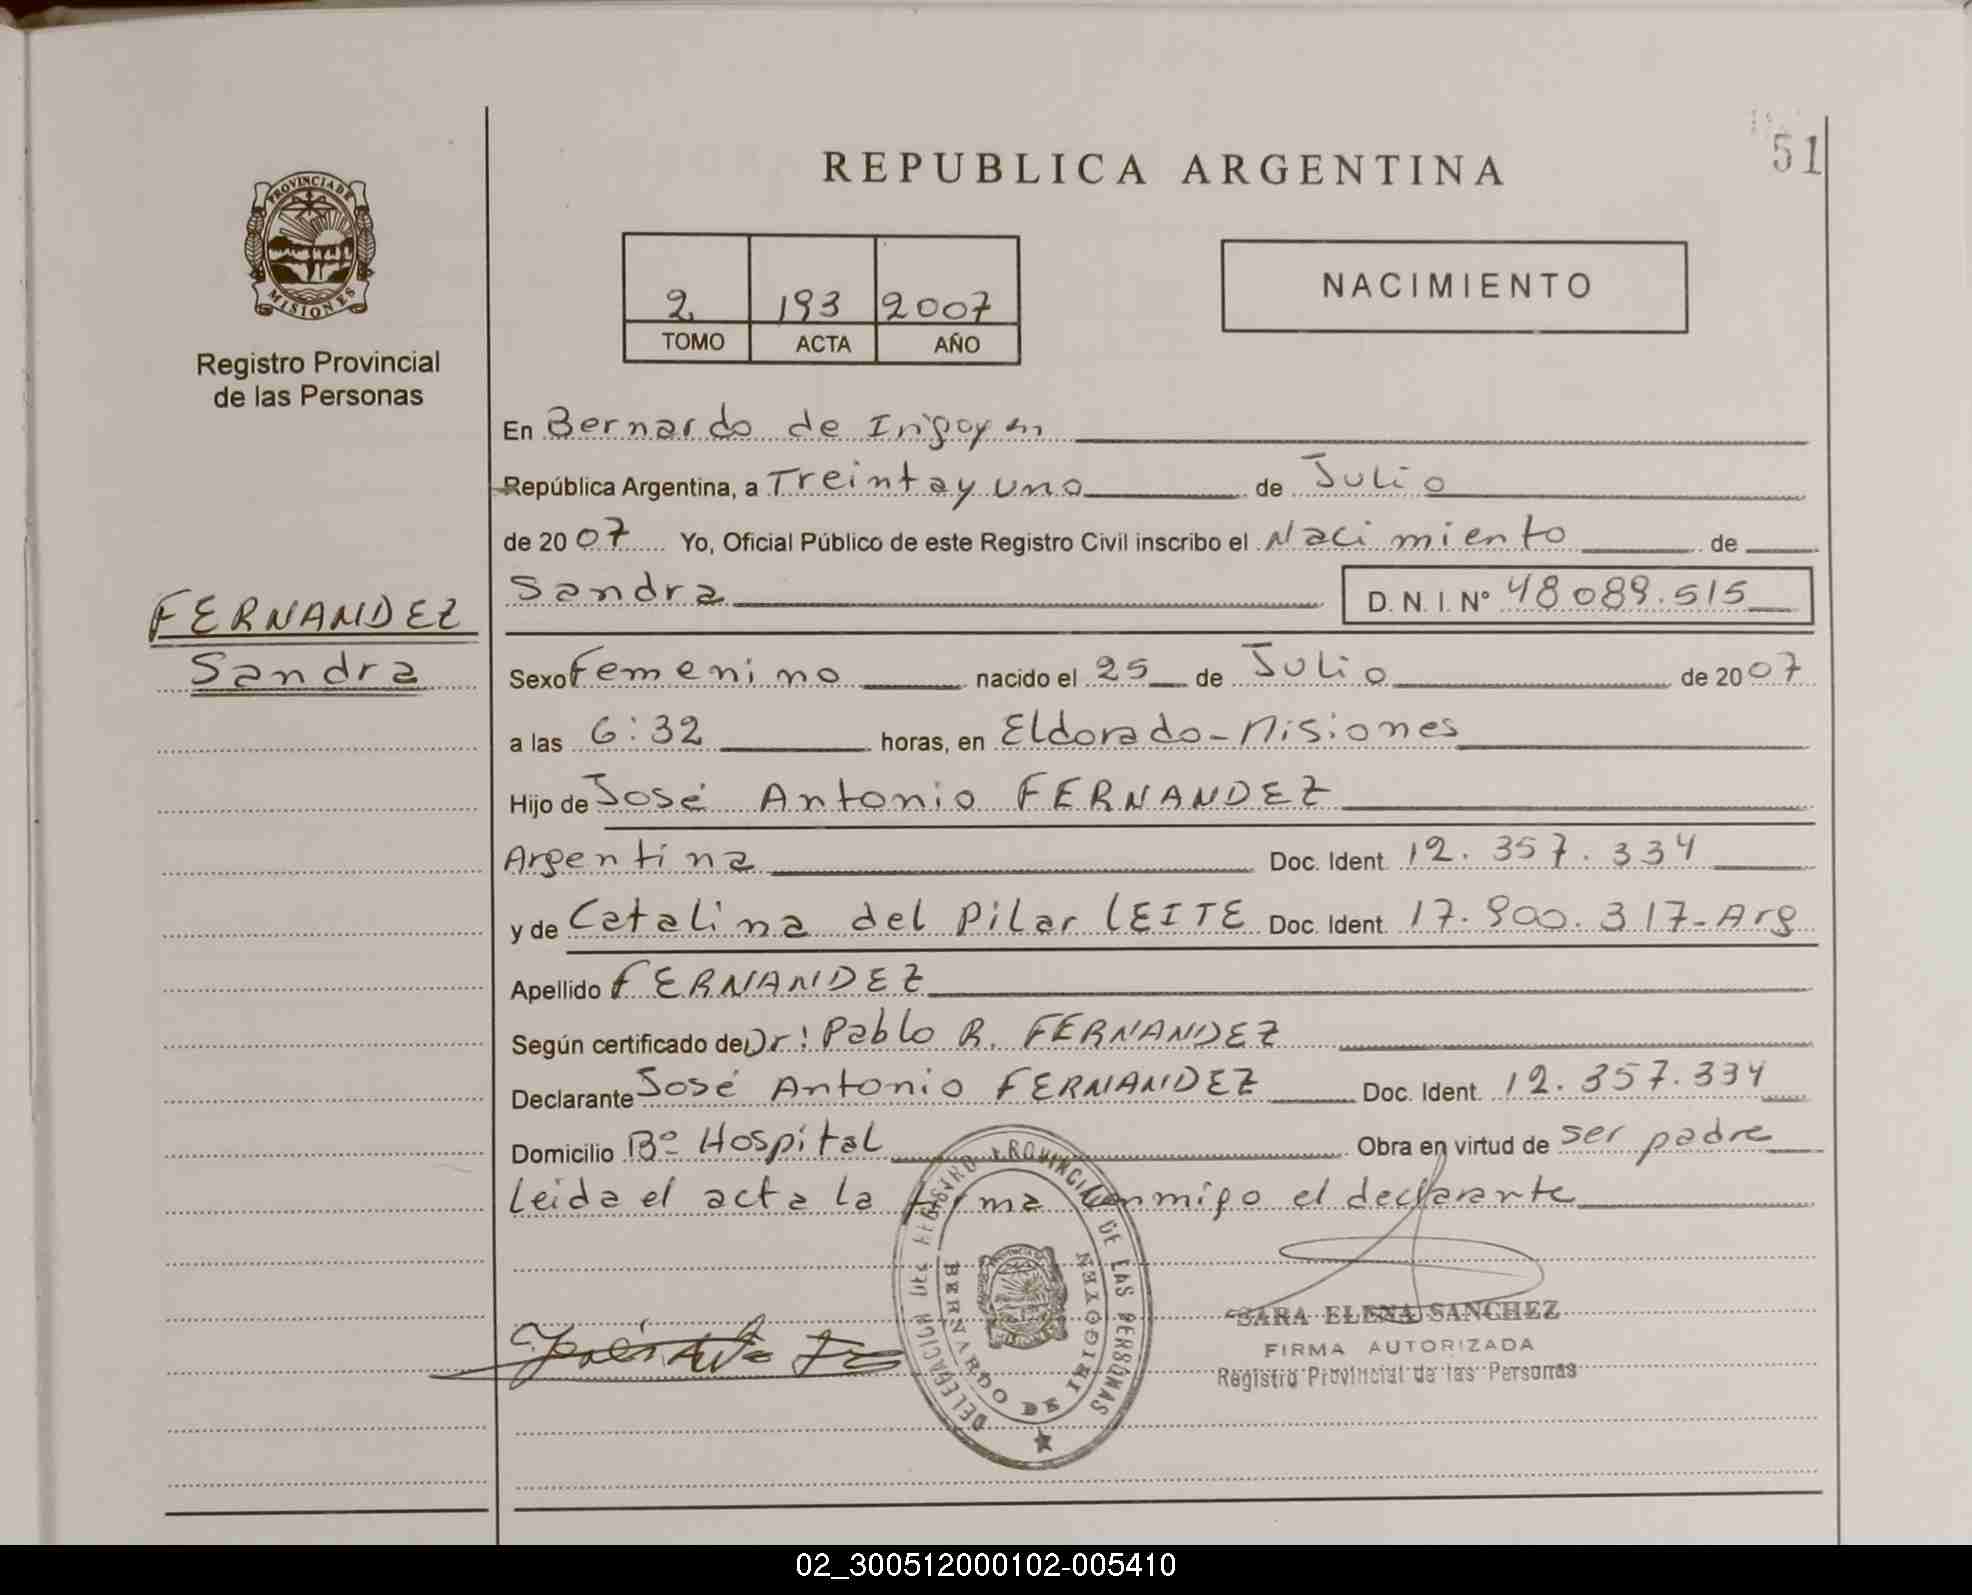 REPUBLICA ARGENTINA
51
PROVINCIA DE
MISIONES
Registro Provincial
de las Personas
2 193 2007
TOMO ACTA AÑO
NACIMIENTO
En Bernardo de Irigoyen
República Argentina, a Treinta y uno de Julio
de 2007 Yo, Oficial Público de este Registro Civil inscribo el Nacimiento de
Sandra D. N. I. Nº 48089.515
FERNANDEZ
Sandra
Sexo Femenino nacido el 25 de Julio de 2007
a las 6:32 horas, en Eldorado-Misiones
Hijo de José Antonio FERNANDEZ
Argentina Doc. Ident. 12.357.334
y de Catalina del Pilar LEITE Doc. Ident. 17.900.317-Arg
Apellido FERNANDEZ
Según certificado de Dr: Pablo R. FERNANDEZ
Declarante José Antonio FERNANDEZ Doc. Ident. 12.357.334
Domicilio Bº Hospital Obra en virtud de ser padre
Leida el acta la firma conmigo el declarante
DELEGACION DEL REGISTRO PROVINCIAL DE LAS PERSONAS
BERNARDO DE IRIGOYEN
SARA ELENA SANCHEZ
FIRMA AUTORIZADA
Registro Provincial de las Personas
02_300512000102-005410